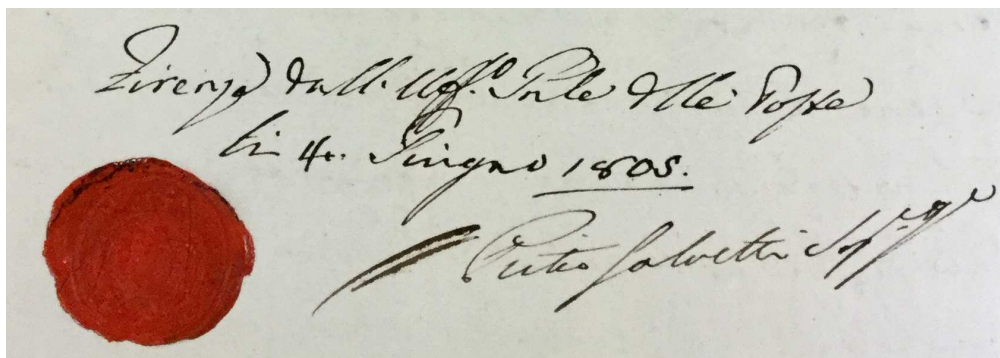 Firenze dall. Uff.o Prle delle Poste
li 4. Giugno 1805.
Pietro Salvetti